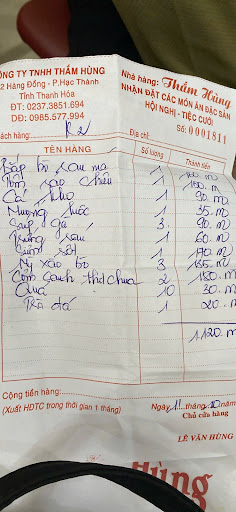 CÔNG TY TNHH THẮM HÙNG
2 Hàng Đồng - P.Hạc Thành
Tỉnh Thanh Hóa
ĐT: 0237.3851.694
DĐ: 0985.577.994
Nhà hàng: Thắm Hùng
NHẬN ĐẶT CÁC MÓN ĂN ĐẶC SẢN
HỘI NGHỊ - TIỆC CƯỚI
Số: 0001811
khách hàng: R2 Địa chỉ:
TÊN HÀNG Số lượng Thành tiền
Bắp bò 1
Tôm xào 1 180.m
Cá kho 1 90.m
Muống luộc 1 35.m
gà 3 90.m
Trứng 1 60.m
1 170.m
Mỳ xào bò 3
Cơm canh 2 180.m
Quả 10 30.m
Trà đá 1 20.m
1.120.m
Cộng tiền hàng:
(Xuất HĐTC trong thời gian 1 tháng)
Ngày 11 tháng 10 năm
Chủ cửa hàng
LÊ VĂN HÙNG
Hùng